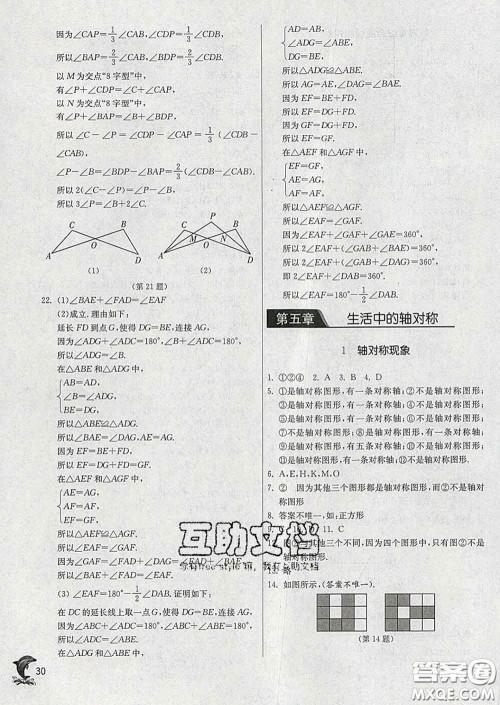 因为∠CAP=1/3∠CAB,∠CDP=1/3∠CDB,
所以∠BAP=2/3∠CAB,∠BDP=2/3∠CDB.
以M为交点“8字型”中,
有∠P+∠CDP=∠C+∠CAP,
以N为交点“8字型”中,
有∠P+∠BAP=∠B+∠BDP,
所以∠C-∠P=∠CDP-∠CAP=1/3(∠CDB-
∠CAB),
∠P-∠B=∠BDP-∠BAP=2/3(∠CDB-∠CAB).
所以2(∠C-∠P)=∠P-∠B,
所以3∠P=∠B+2∠C.
C B O A D
(1)
P C B M N O A D
(2)
(第21题)
22. (1)∠BAE+∠FAD=∠EAF
(2)成立.理由如下:
延长FD到点G,使得DG=BE,连接AG.
因为∠ADG+∠ADF=180°,∠ABC+∠ADF=180°,
所以∠ADG=∠ABE.
在△ABE和△ADG中,
AB=AD,
∠B=∠ADG,
BE=DG,
所以△ABE≌△ADG.
所以∠BAE=∠DAG,AE=AG.
因为EF=BE+FD,
所以EF=DG+FD=GF.
在△AEF和△AGF中,
AE=AG,
AF=AF,
EF=GF,
所以△EAF≌△GAF.
所以∠EAF=∠GAF=∠FAD+∠DAG=∠FAD+
∠BAE.
(3)∠EAF=180°-1/2∠DAB.证明如下:
在DC的延长线上取一点G,使得DG=BE,连接AG.
因为∠ABC+∠ADC=180°,∠ABC+∠ABE=180°,
所以∠ADC=∠ABE.
在△ADG和△ABE中,
30
AD=AB,
∠ADG=∠ABE,
DG=BE,
所以△ADG≌△ABE.
所以AG=AE,∠DAG=∠BAE.
因为EF=BE+FD,
所以EF=DG+FD=GF.
在△AEF和△AGF中,
EF=GF,
AE=AG,
AF=AF,
所以△AEF≌△AGF.
所以∠EAF=∠GAF.
因为∠EAF+∠GAF+∠GAE=360°,
所以2∠EAF+(∠GAB+∠BAE)=360°.
所以2∠EAF+(∠GAB+∠DAG)=360°,
即2∠EAF+∠DAB=360°.
所以∠EAF=180°-1/2∠DAB.
第五章 生活中的轴对称
1 轴对称现象
1. ①②④ 2. A 3. B 4. D
5. ①是轴对称图形,有一条对称轴;②不是轴对称图形;
③是轴对称图形,有一条对称轴;④不是轴对称图形;
⑤是轴对称图形,有一条对称轴;⑥不是轴对称图形;
⑦不是轴对称图形;⑧是轴对称图形,有一条对称轴;
⑨不是轴对称图形;⑩是轴对称图形,有五条对称轴;⑪不是轴对称图形;
6. A,E,H,K,M,O
7. ② 因为其他三个图形都是轴对称图形,而②不是轴
对称图形
8. 答案不唯一,如:正方形
11. C
与其他三个不同,因为四个图形中,只
轴对称图形
13. 略
14. 如图所示,(答案不唯一).
(第14题)
互助文档
答案圈
MXQE.COM